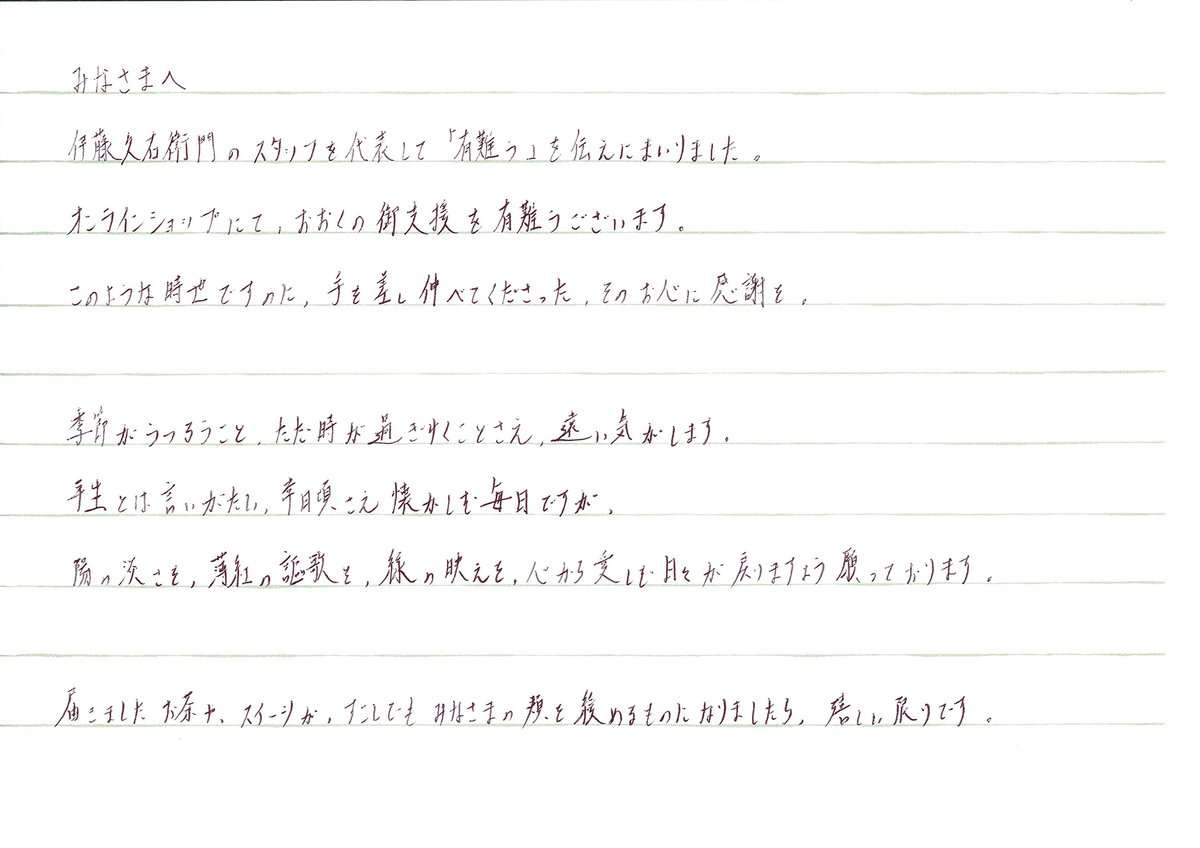 みなさまへ
伊藤久右衛門のスタッフを代表して「有難う」を伝えにまいりました。
オンラインショップにて、おおくの御支援を有難うございます。
このような時世ですのに、手を差し伸べてくださった、そのお心に感謝を。
季節がうつろうこと、ただ時が過ぎゆくことさえ、遠い気がします。
平生とは言いがたい、幸日頃さえ懐かしむ毎日ですが、
陽の淡さを、薄紅の謳歌を、緑の映えを、心から愛しむ日々が戻りますよう願っております。
届きましたお茶や、スイーツが、すこしでもみなさまの頬を緩めるものになりましたら、嬉しい限りです。